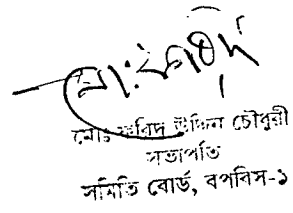 মোঃ ফরিদ
মোঃ ফরিদ উদ্দিন চৌধুরী
সভাপতি
সমিতি বোর্ড, বপবিস-১